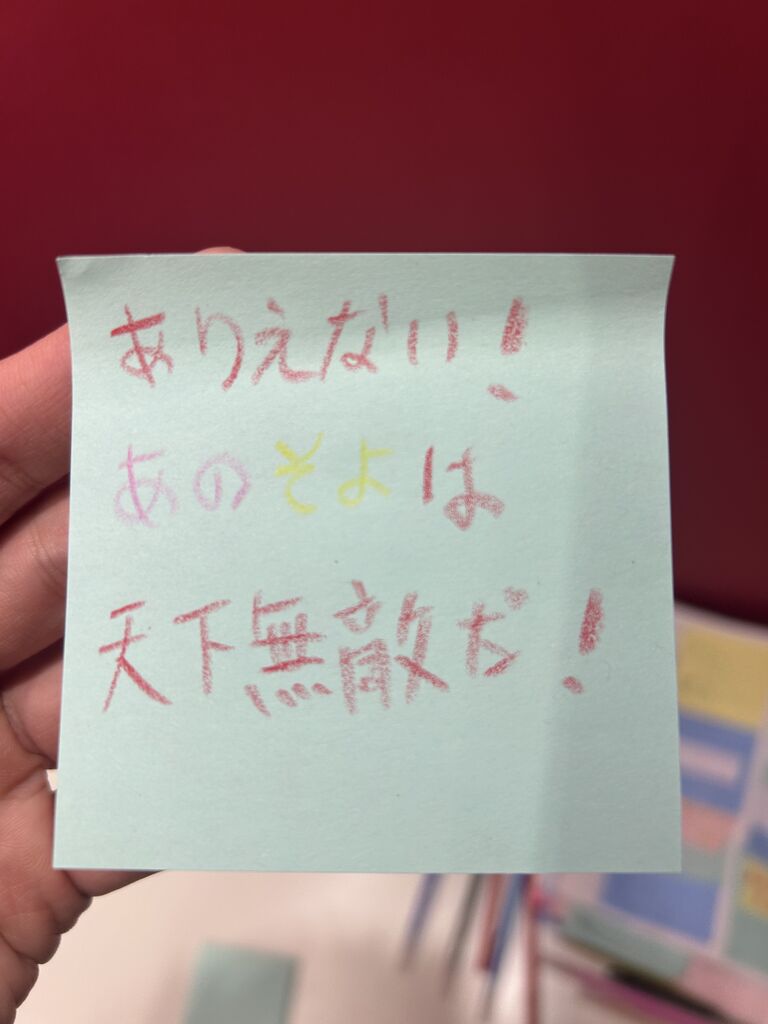 ありえない!
あのそよは
天下無敵だ!